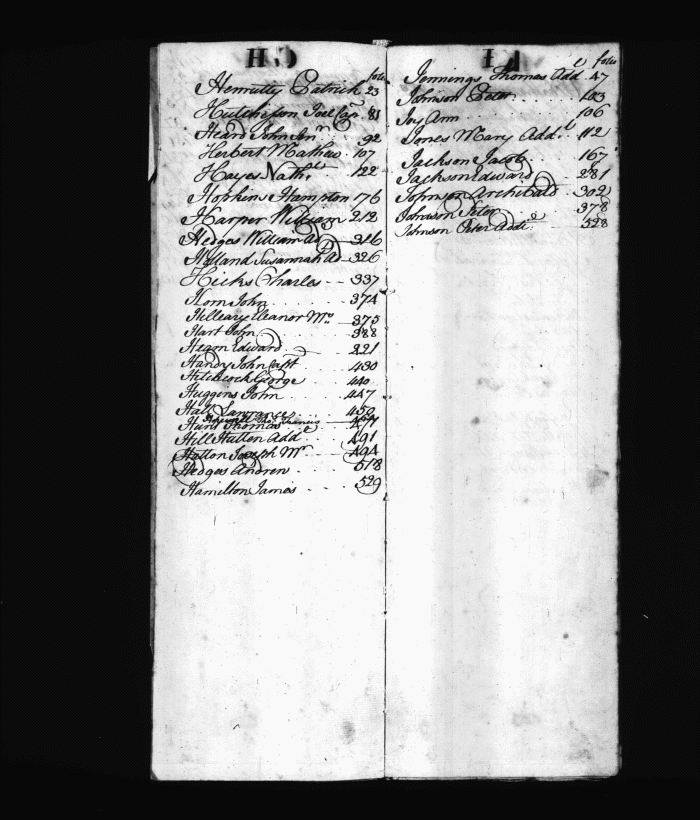 H
folio
Henrietty Patrick 23
Hutchison Joel Cap 81
Heard John Jnr 92
Herbert Mathew 107
Hayes Nath. 122
Hopkins Hampton 176
Harper William 212
Hedges William Ad 316
Holland Susannah Ad 326
Hicks Charles 337
Horn John 374
Hilleary Eleanor Mrs 375
Hart John 388
Hearn Edward 221
Handy John Capt 430
Hitchcock George 440
Huggens John 447
Hall Lawrence 450
Hunt Thomas 477
Hill Hutten Add 491
Hatton Joseph Mr 494
Hedges Andrew 518
Hamilton James 529
I
folio
Jennings Thomas Add 47
Johnson Peter 103
Joy Ann 106
Jones Mary Add. 112
Jackson Jacob 167
Jackson Edward 281
Johnson Archibald 302
Johnson Peter 378
Johnson Peter Add. 528